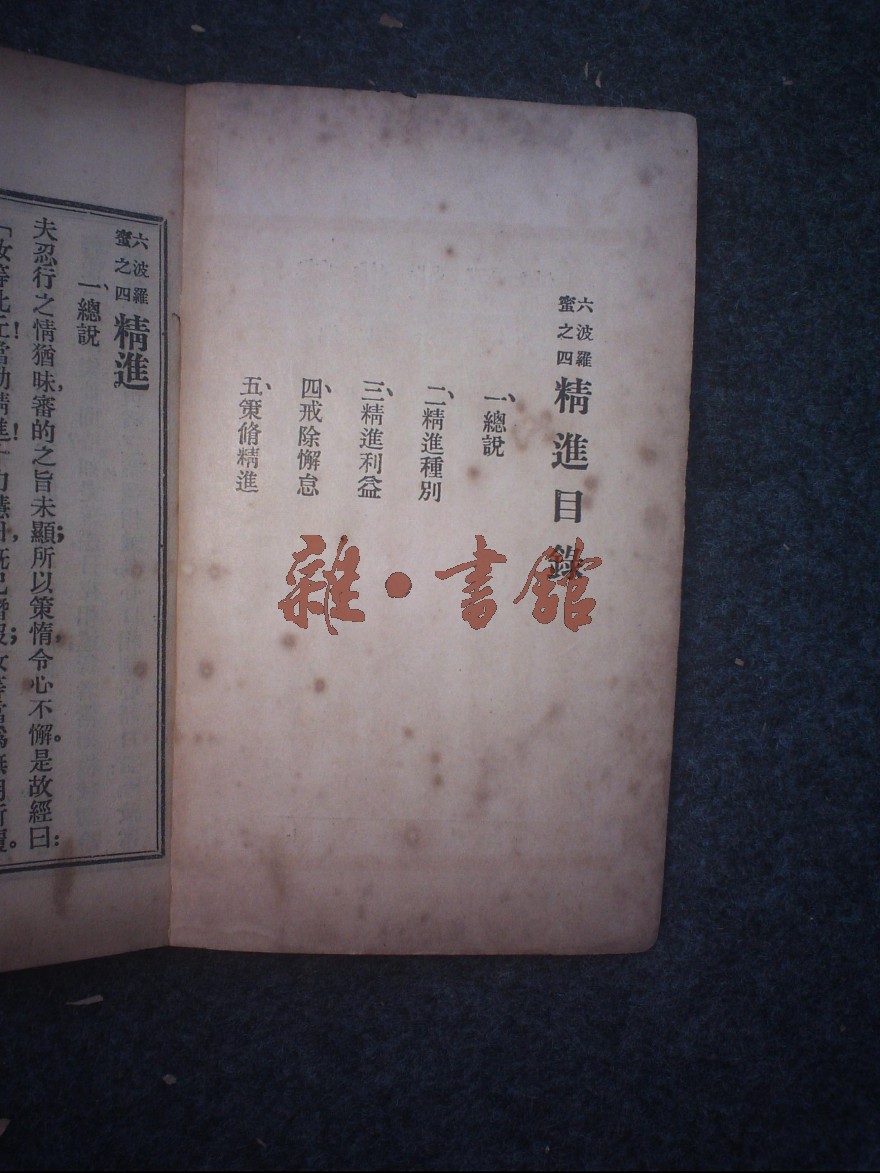 六波羅蜜之四 精進目錄
一、總說
二、精進種別
三、精進利益
四、戒除懈怠
五、策脩精進
雜·書館
六波羅蜜之四 精進
一、總說
夫忍行之情猶昧，審的之旨未顯；所以策惰，令心不懈。是故經曰：